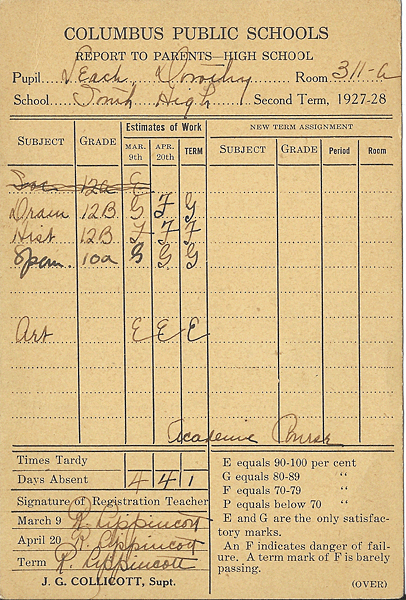 COLUMBUS PUBLIC SCHOOLS
REPORT TO PARENTS—HIGH SCHOOL
Pupil Peach Dorothy Room 311-a
School High Second Term, 1927-28
Estimates of Work NEW TERM ASSIGNMENT
SUBJECT GRADE MAR. 9th APR. 20th TERM SUBJECT GRADE Period Room
Soc 12a E
Dram 12B G F G
Hist 12B F F F
Span. 10a G G G
Art E E E
Academic Course
Times Tardy
Days Absent 4 4 1
Signature of Registration Teacher
March 9 R. Lippincott
April 20 R. Lippincott
Term R. Lippincott
J. G. COLLICOTT, Supt.
E equals 90-100 per cent
G equals 80-89 “
F equals 70-79 “
P equals below 70 “
E and G are the only satisfac-
tory marks.
An F indicates danger of fail-
ure. A term mark of F is barely
passing.
(OVER)